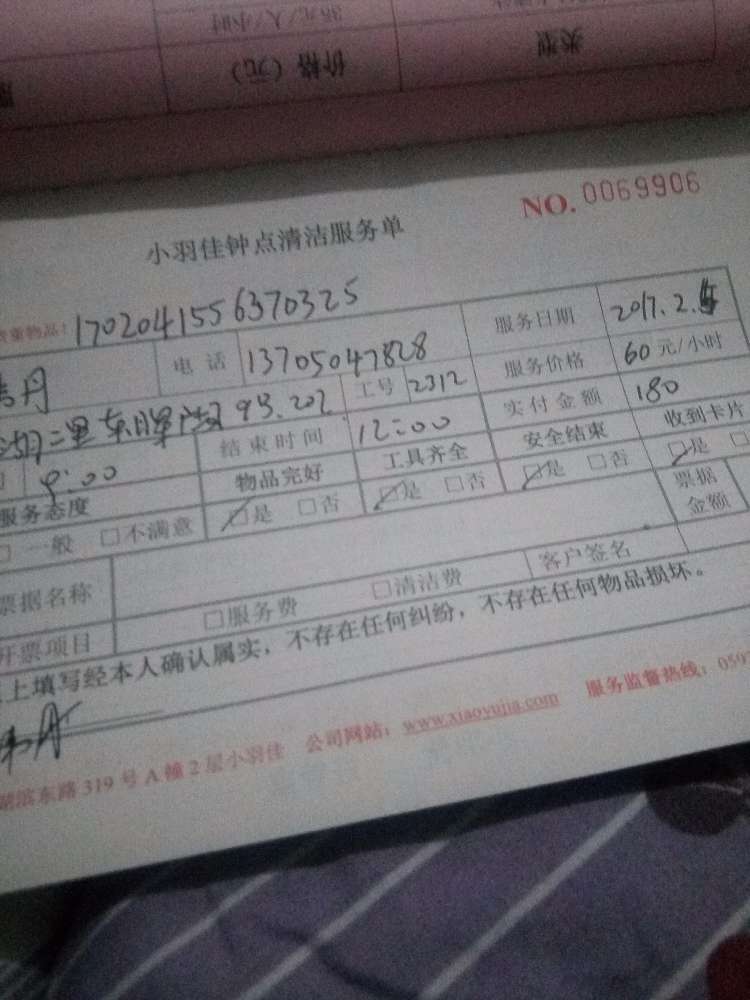 35元/人/小时
价格（元）
类型
NO. 0069906
小羽佳钟点清洁服务单
贵重物品: 1702041556370325
丹 电话 13705047828 服务日期 2017.2.
二里东 93.202 工号 2312 服务价格 60元/小时
9:00 结束时间 12:00 实付金额 180
服务态度 物品完好 工具齐全 安全结束 收到卡片
□一般 □不满意 □是 □否 □是 □否 □是 □否 □是
票据名称 票据金额
开票项目 □服务费 □清洁费 客户签名
上填写经本人确认属实，不存在任何纠纷，不存在任何物品损坏。
丹
湖滨东路319号A幢2层小羽佳 公司网站：www.xiaoyujia.com 服务监督热线：059